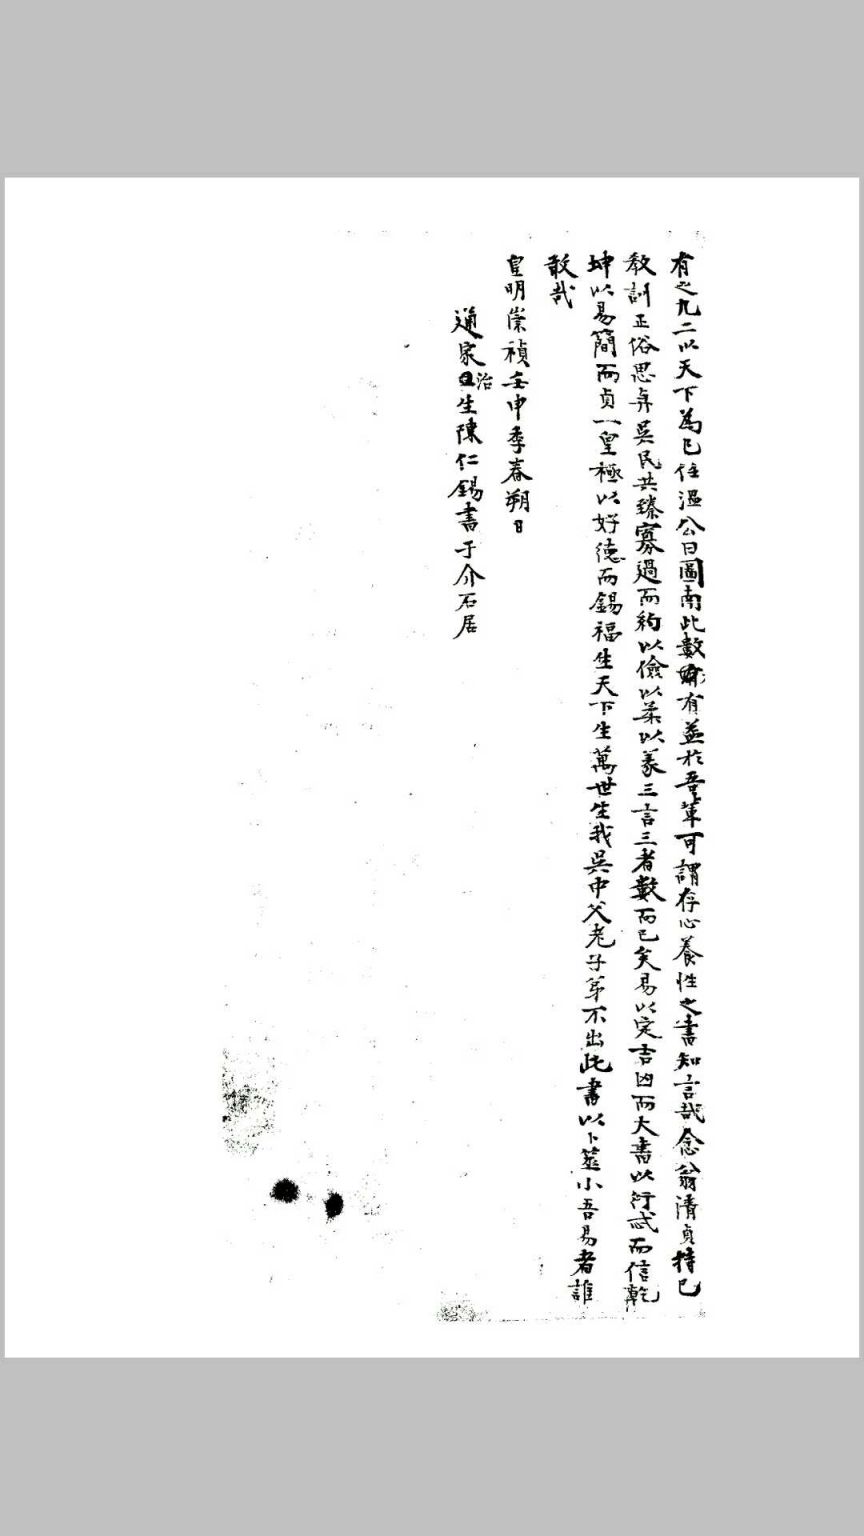 有之九二以天下為己任溫公曰圖南此數有益於吾輩可謂存心養性之書知言哉念翁清貞持己
教訓正俗思與吳民共臻寡過而約以儉以柔以義三言三者數而已矣易以定吉凶而大書以衍忒而信乾
坤以易簡而貞一皇極以好德而錫福生天下生萬世生我吳中父老子弟不出此書以卜筮小吾易者誰
敢哉
皇明崇禎壬申季春朔日
通家治生陳仁錫書于介石居